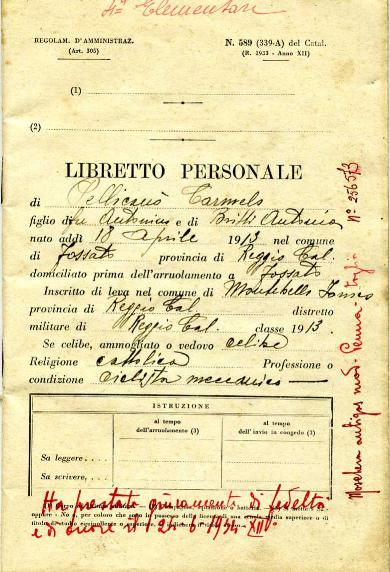 4ª Elementari
REGOLAM. D'AMMINISTRAZ.
(Art. 305)
N. 589 (339-A) del Catal.
(R. 1933 - Anno XII)
(1)
(2)
LIBRETTO PERSONALE
di Pellicanò Carmelo
figlio di fu Antonino e di Britti Antonia
nato addì 18 Aprile 1913 nel comune
di Fossato provincia di Reggio Cal.
domiciliato prima dell'arruolamento a Fossato
Inscritto di leva nel comune di Montebello Jonico
provincia di Reggio Cal. distretto
militare di Reggio Cal. classe 1913.
Se celibe, ammogliato o vedovo celibe
Religione cattolica Professione o
condizione ciclista meccanico
ISTRUZIONE
al tempo
dell'arruolamento (3)
al tempo
dell'invio in congedo (3)
Sa leggere....
Sa scrivere,....
Ha prestato giuramento di fedeltà
oppure: No e, per coloro che sono in possesso della licenza di una scuola media superiore o di
e di onore il 24-6-1934-XIIº
Maschera antigas mod. taglia Nº 256573